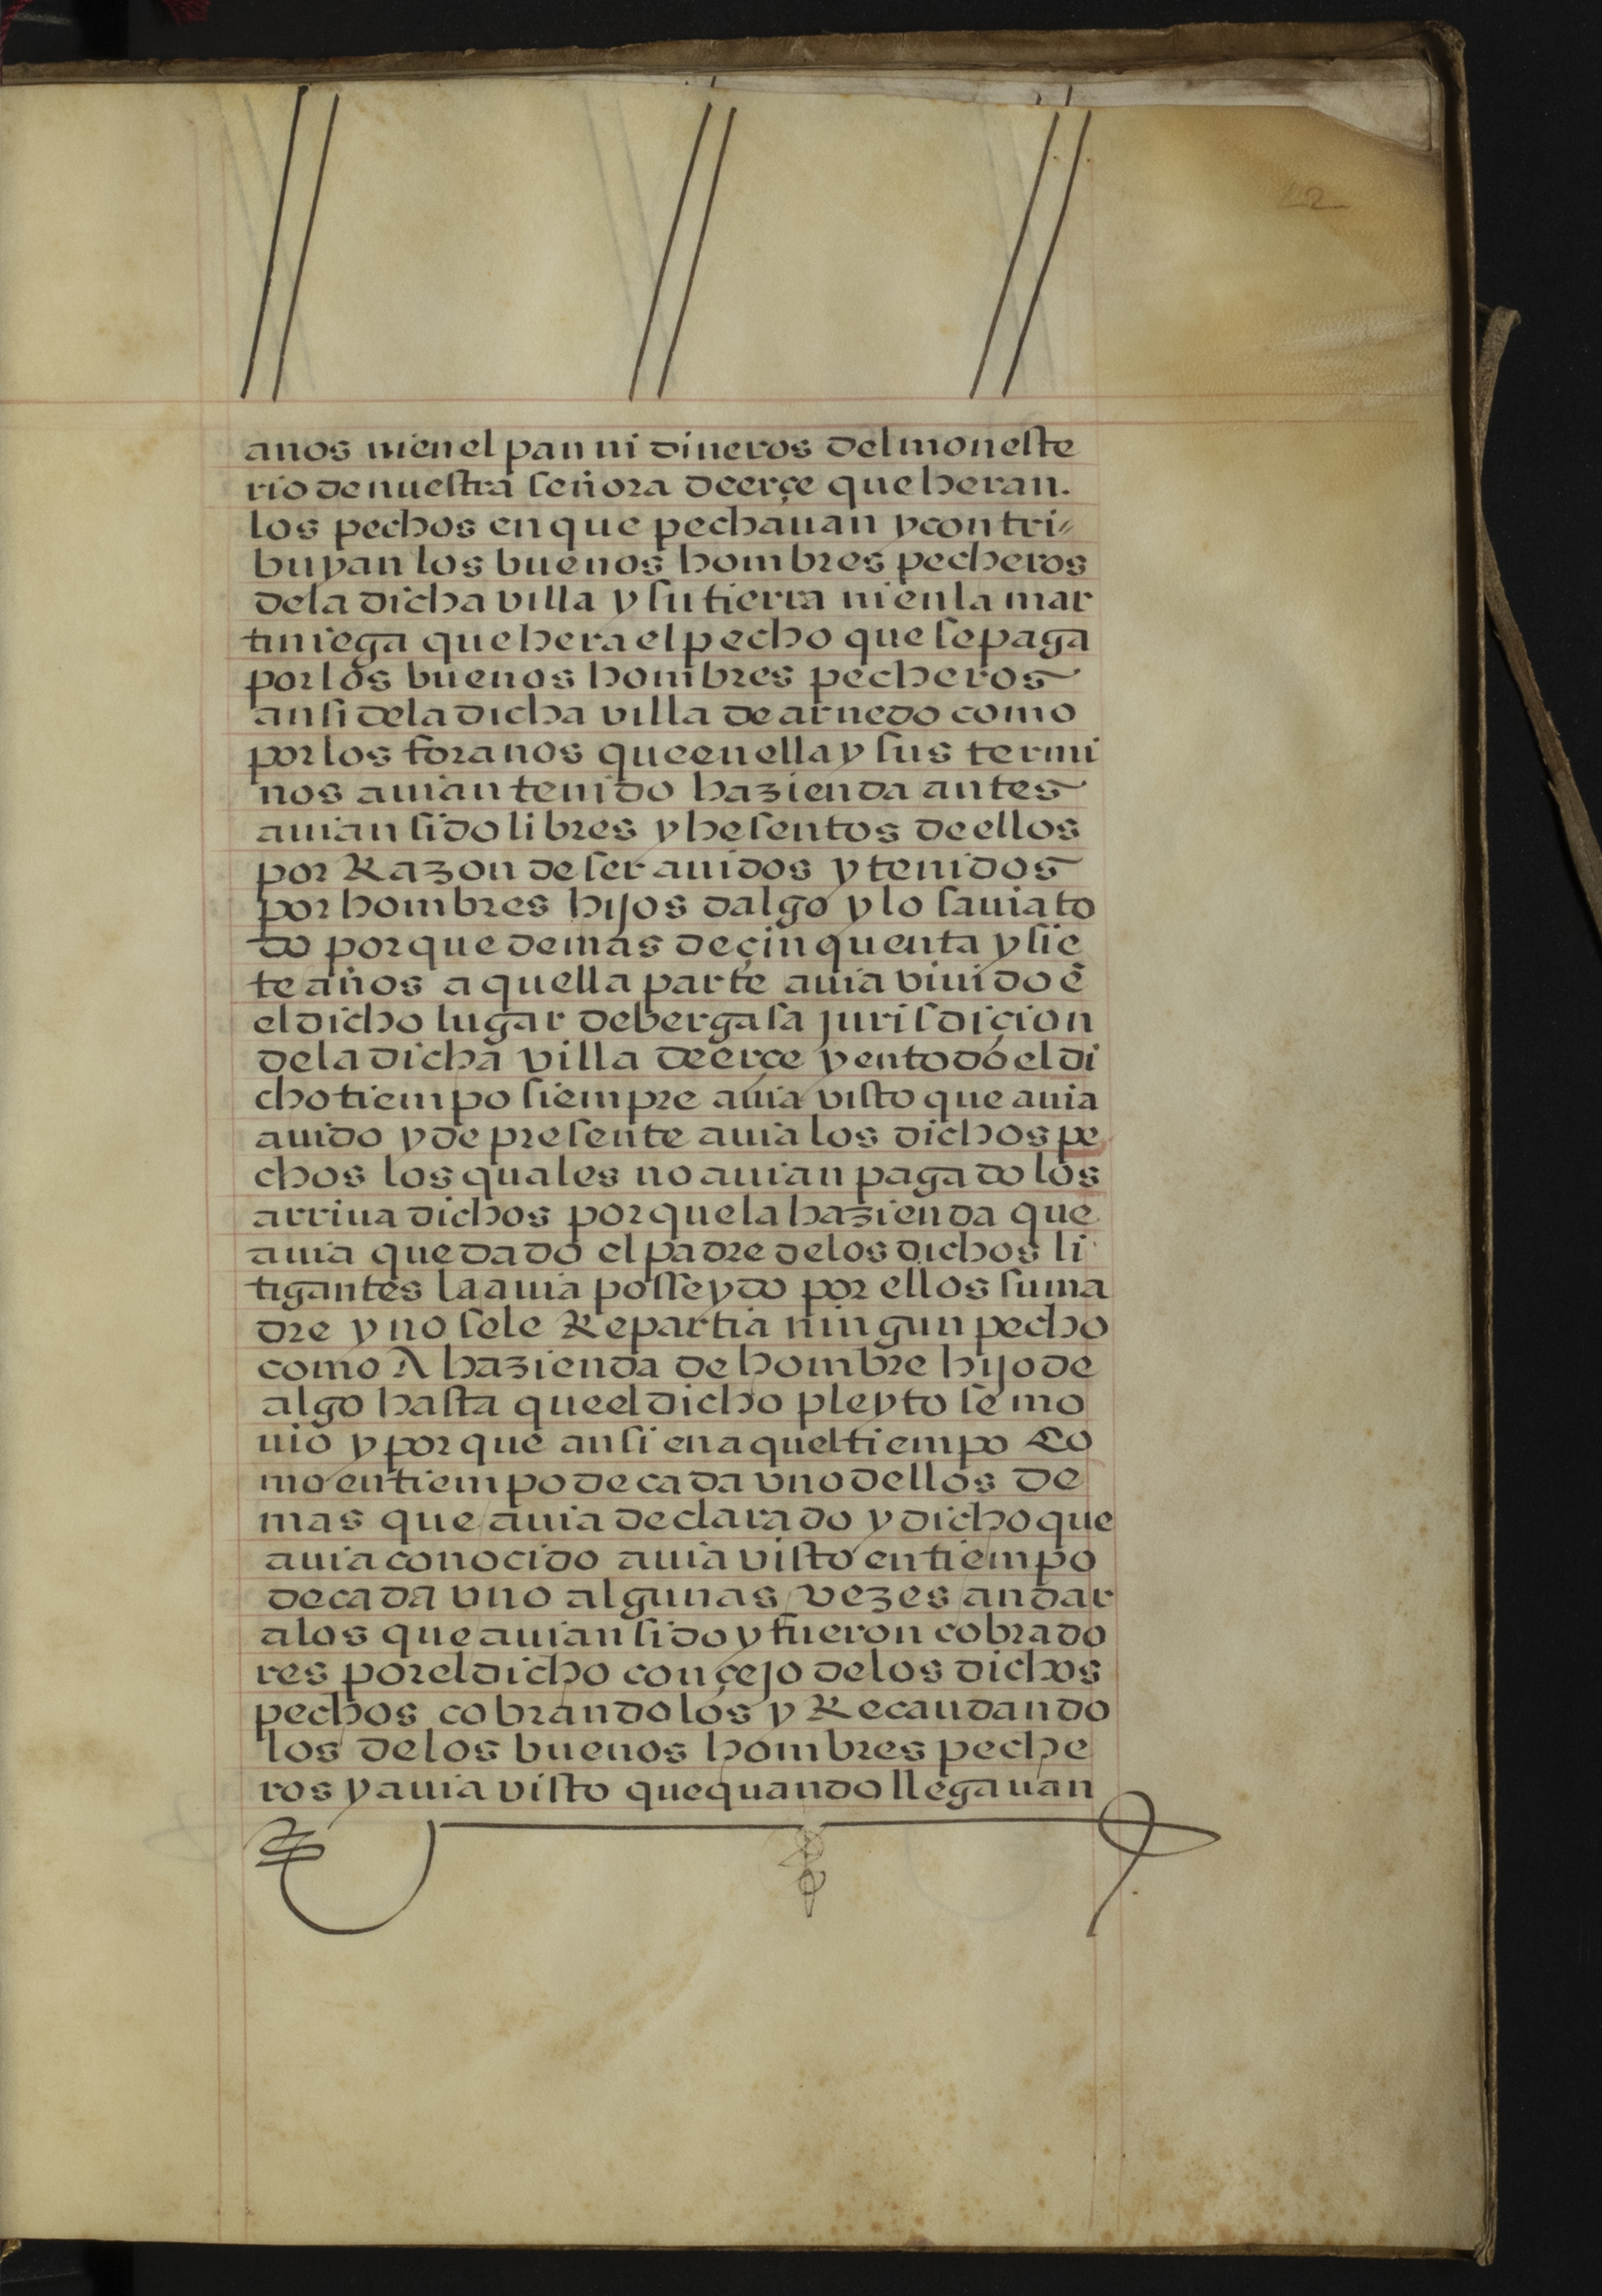 12
anos nien el pan ni dineros del moneste
rio de nuestra señora de erçe que heran.
los pechos en que pechauan y contri-
buyan los buenos hombres pecheros
de la dicha villa y su tierra ni en la mar
tiniega que hera el pecho que se paga
por los buenos hombres pecheros
ansi de la dicha villa de arnedo como
por los foranos que en ella y sus termi
nos auian tenido hazienda antes
auian sido libres y hesentos de ellos
por Razon de ser auidos y tenidos
por hombres hijos dalgo y lo sauia to
do porque de mas de çinquenta y sie
te años a quella parte auia viuido ē
el dicho lugar de bergasa jurisdiçion
de la dicha villa de erçe y en todo el di
cho tiempo siempre auia visto que auia
auido y de presente auia los dichos pe
chos los quales no auian pagado los
arriua dichos porque la hazienda que
auia quedado el padre de los dichos li
tigantes la auia posseydo por ellos su ma
dre y no se le Repartia ningun pecho
como A hazienda de hombre hijo de
algo hasta que el dicho pleyto se mo
uio y por que ansi en aquel tiempo Co
mo en tiempo de cada vno dellos De
mas que auia declarado y dicho que
auia conocido auia visto en tiempo
de cada vno algunas vezes andar
a los que auian sido y fueron cobrado
res por el dicho conçejo de los dichos
pechos cobrandolos y Recaudando
los de los buenos hombres peche
ros y auia visto que quando llegauan